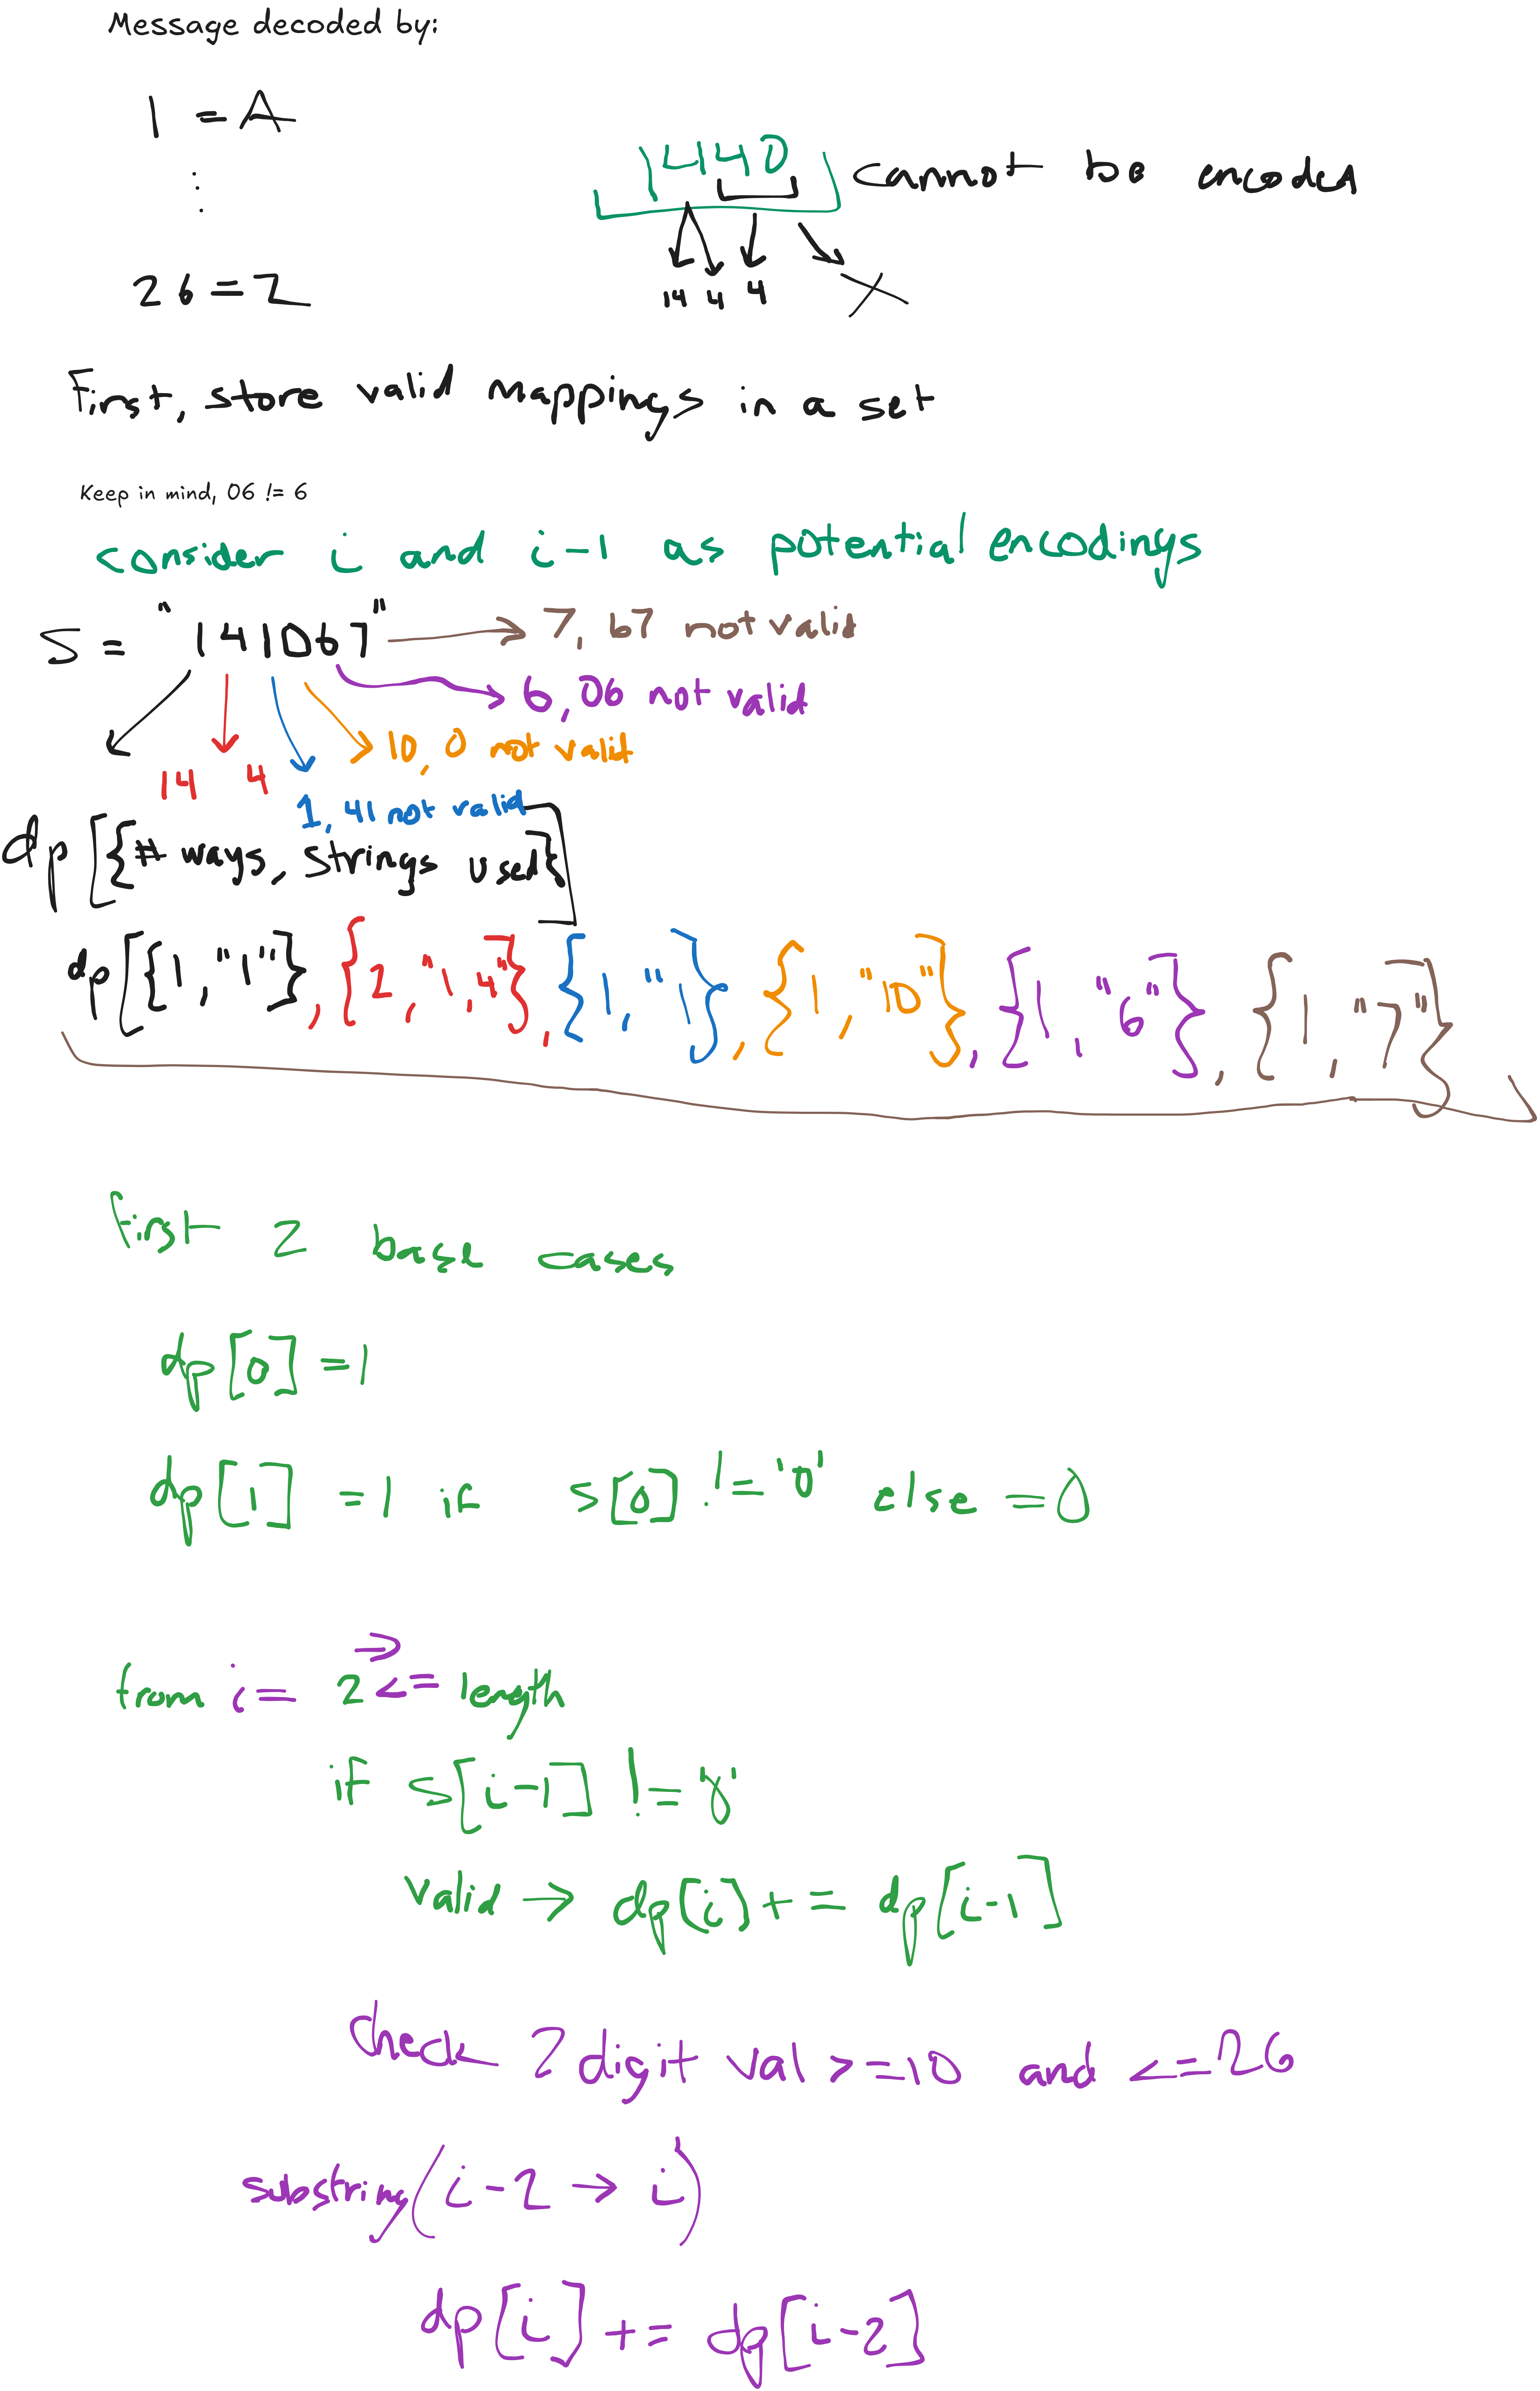 Message decoded by:
1 = A
:
26 = Z
1440 cannot be encoded
14 4 4 X
First, store valid mappings in a set
Keep in mind, 06 != 6
consider i and i-1 as potential encodings
S = "141067" → 7, 67 not valid
6, 06 not valid
10, 0 not valid
14 4
1, 41 not valid
dp [{# ways, strings used}]
dp [{1, "1"}, {2, "1,4"}, {1, "1"}, {1, "10"}, {1, "6"}, {1, "7"}]
First 2 base cases
dp[0] = 1
dp[1] = 1 if s[0] != '0' else = 0
from i = 2 → <= length
if s[i-1] != '0'
valid → dp[i] += dp[i-1]
check 2 digit val >= 10 and <= 26
substring(i-2 → i)
dp[i] += dp[i-2]